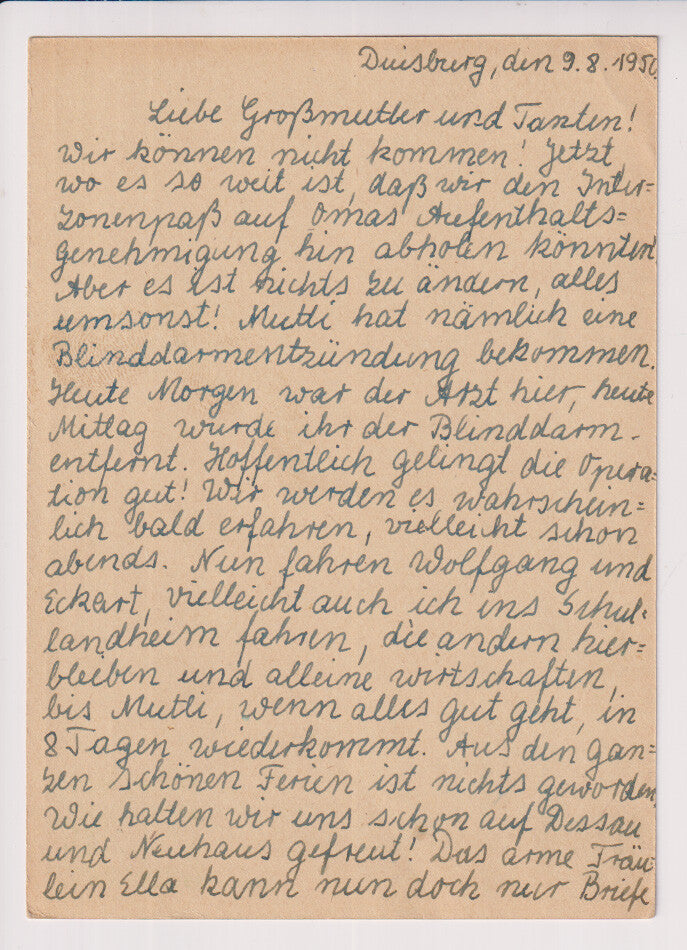 Duisburg, den 9.8.1950
Liebe Großmutter und Tanten!
Wir können nicht kommen! Jetzt,
wo es so weit ist, daß wir den Inter=
zonenpaß auf Omas Aufenthalts=
genehmigung hin abholen könnten!
Aber es ist nichts zu ändern, alles
umsonst! Mutti hat nämlich eine
Blinddarmentzündung bekommen.
Heute Morgen war der Arzt hier, heute
Mittag wurde ihr der Blinddarm
entfernt. Hoffentlich gelingt die Opera=
tion gut! Wir werden es wahrschein=
lich bald erfahren, vielleicht schon
abends. Nun fahren Wolfgang und
Eckart, vielleicht auch ich ins Schul=
landheim fahren, die andern hier=
bleiben und alleine wirtschaften,
bis Mutti, wenn alles gut geht, in
8 Tagen wiederkommt. Aus den gan=
zen schönen Ferien ist nichts geworden.
Wie halten wir uns schon auf Dessau
und Neuhaus gefreut! Das arme Fräu=
lein Ella kann nun doch nur Briefe